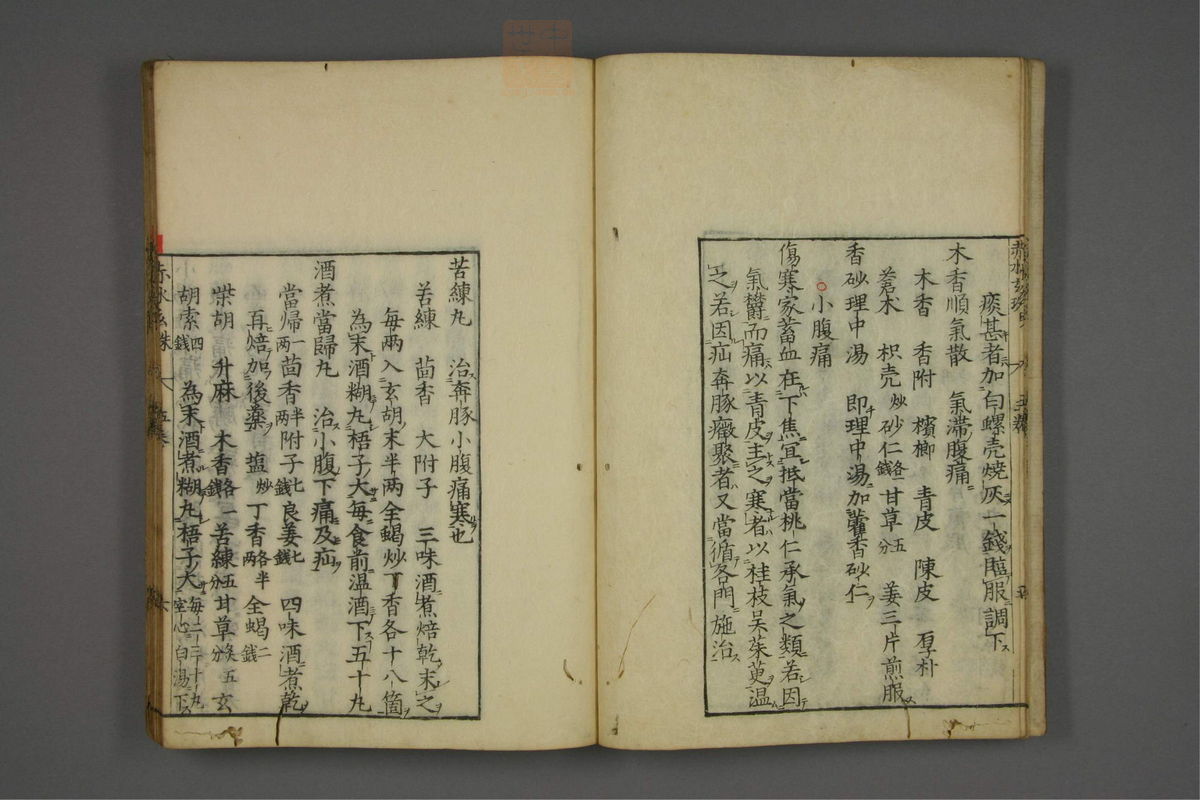 痰甚者加白螺壳燒灰一錢臨服調下
木香順氣散　氣滯腹痛
木香　香附　檳榔　青皮　陳皮　厚朴
蒼木　枳壳炒砂仁各錢甘草五分　姜三片煎服
香砂理中湯　即理中湯加藿香砂仁
○小腹痛
傷寒家蓄血在下焦宜抵當桃仁承氣之類若因
氣欝而痛以青皮主之寒者以桂枝吴茱萸温
之若因疝奔豚癥聚者又當循各門施治
苦練丸　治奔豚小腹痛寒也
苦練　茴香　大附子　三味酒煮焙乾末之
每兩入玄胡末半兩全蝎炒丁香各十八箇
為末酒糊丸梧子大每食前温酒下五十丸
酒煮當歸丸　治小腹下痛及疝
當帰一兩茴香半兩附子七錢良姜七錢　四味酒煮乾
再焙加後藥　塩炒丁香各半兩　全蝎二錢
柴胡　升麻　木香各一錢苦練五分甘草炙五分玄
胡索四錢　為末酒煮糊丸梧子大每二三十丸空心白湯下